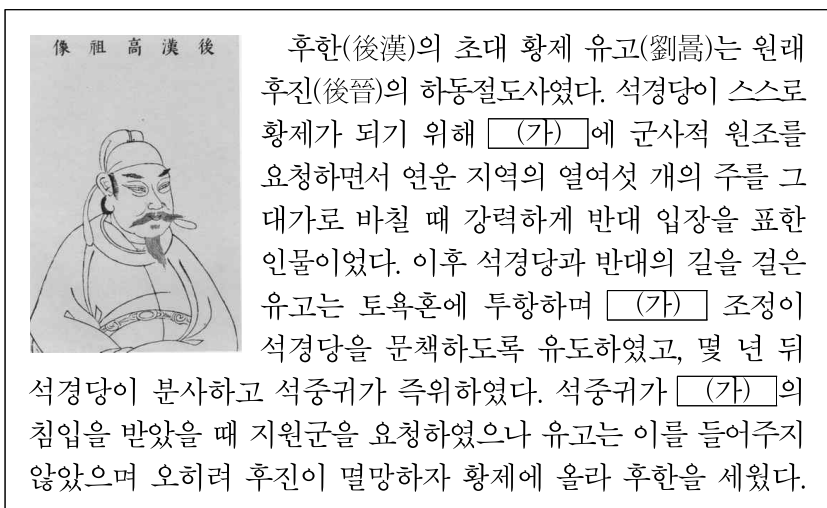 像祖高漢後
후한(後漢)의 초대 황제 유고(劉暠)는 원래
후진(後晉)의 하동절도사였다. 석경당이 스스로
황제가 되기 위해 (가) 에 군사적 원조를
요청하면서 연운 지역의 열여섯 개의 주를 그
대가로 바칠 때 강력하게 반대 입장을 표한
인물이었다. 이후 석경당과 반대의 길을 걸은
유고는 토욕혼에 투항하며 (가) 조정이
석경당을 문책하도록 유도하였고, 몇 년 뒤
석경당이 분사하고 석중귀가 즉위하였다. 석중귀가 (가) 의
침입을 받았을 때 지원군을 요청하였으나 유고는 이를 들어주지
않았으며 오히려 후진이 멸망하자 황제에 올라 후한을 세웠다.